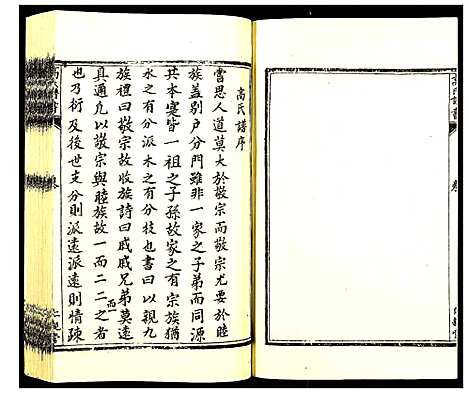 高氏譜序
嘗思人道莫大於敬宗而敬宗尤要於睦
族蓋別户分門雖非一家之子弟而同源
共本寔皆一祖之子孫故家之有宗族猶
水之有分派木之有分枝也書曰以親九
族禮曰敬宗故收族詩曰戚戚兄弟莫遠
具通九以敬宗與睦族故一而二二之者
而
也乃衍及後世支分則派遠派遠則情疎